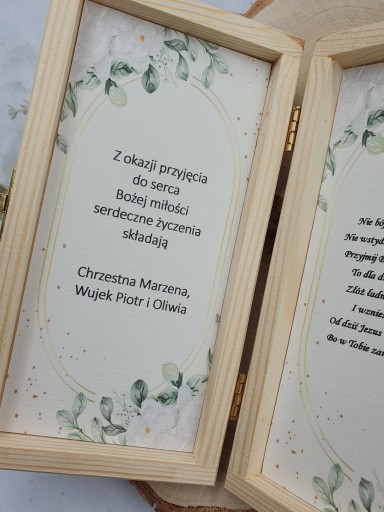 Z okazji przyjęcia
do serca
Bożej miłości
serdeczne życzenia
składają
Chrzestna Marzena,
Wujek Piotr i Oliwia
Nie
Nie
Przyjmij
To dla
Złóż
I
Od dziś Jezus
Bo w Tobie